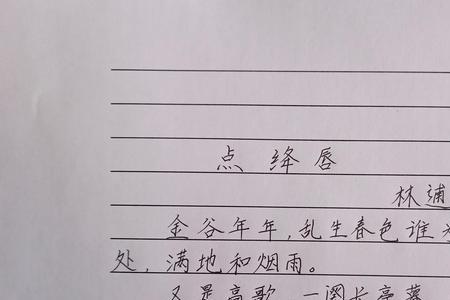 点绛唇
林逋
金谷年年,乱生春色谁
处,满地和烟雨。
又是离歌 一阕长亭暮